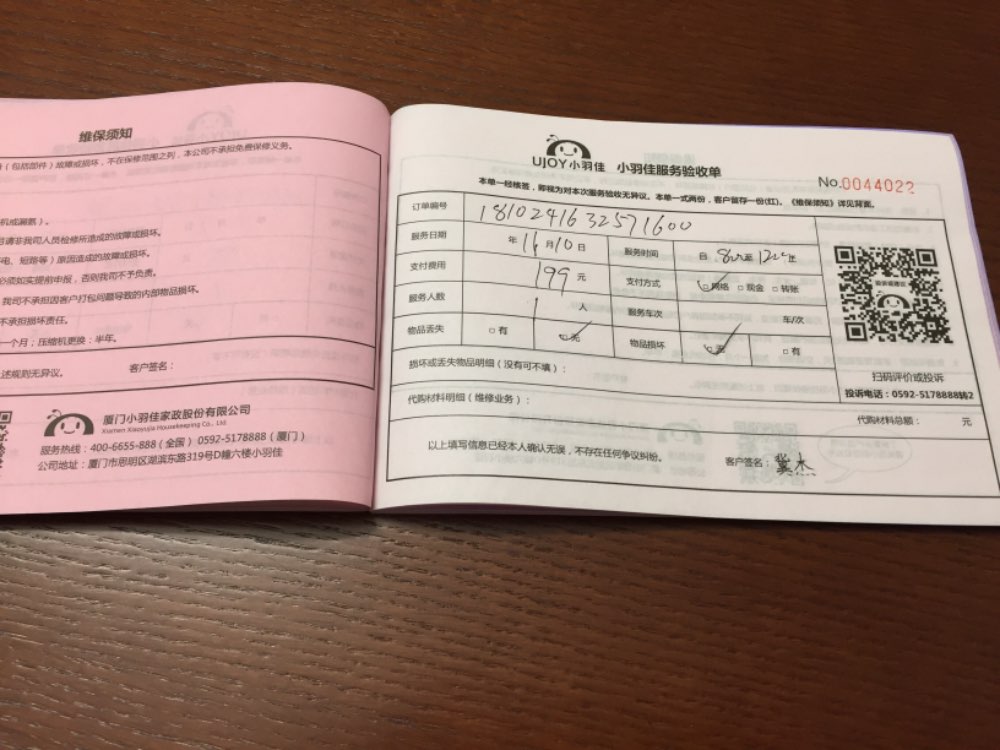 维保须知
(包括部件)故障或损坏,不在保修范围之列,本公司不承担免费保修义务。
机或漏氟)。
请非我司人员检修所造成的故障或损坏。
电、短路等)原因造成的故障或损坏。
必须如实提前申报,否则我司不予负责。
我司不承担因客户打包问题导致的内部物品损坏。
不承担损坏责任。
一个月;压缩机更换:半年。
述规则无异议。 客户签名:
厦门小羽佳家政股份有限公司
Xiamen Xiaoyujia Housekeeping Co., Ltd
服务热线:400-6655-888(全国) 0592-5178888(厦门)
公司地址:厦门市思明区湖滨东路319号D幢六楼小羽佳
UJOY小羽佳 小羽佳服务验收单
No.0044022
本单一经核签,即视为对本次服务验收无异议。本单一式两份,客户留存一份(红)。《维保须知》详见背面。
订单编号 1810241632571600
服务日期 年11月10日 服务时间 日 至
支付费用 199元 支付方式 □网络 □现金 □转账
服务人数 1 人 服务车次 车/次
物品丢失 □有 □无 物品损坏 □无 □有
损坏或丢失物品明细(没有可不填):
代购材料明细(维修业务):
代购材料总额: 元
以上填写信息已经本人确认无误,不存在任何争议纠纷。 客户签名:冀杰
扫码评价或投诉
投诉电话:0592-5178888转2